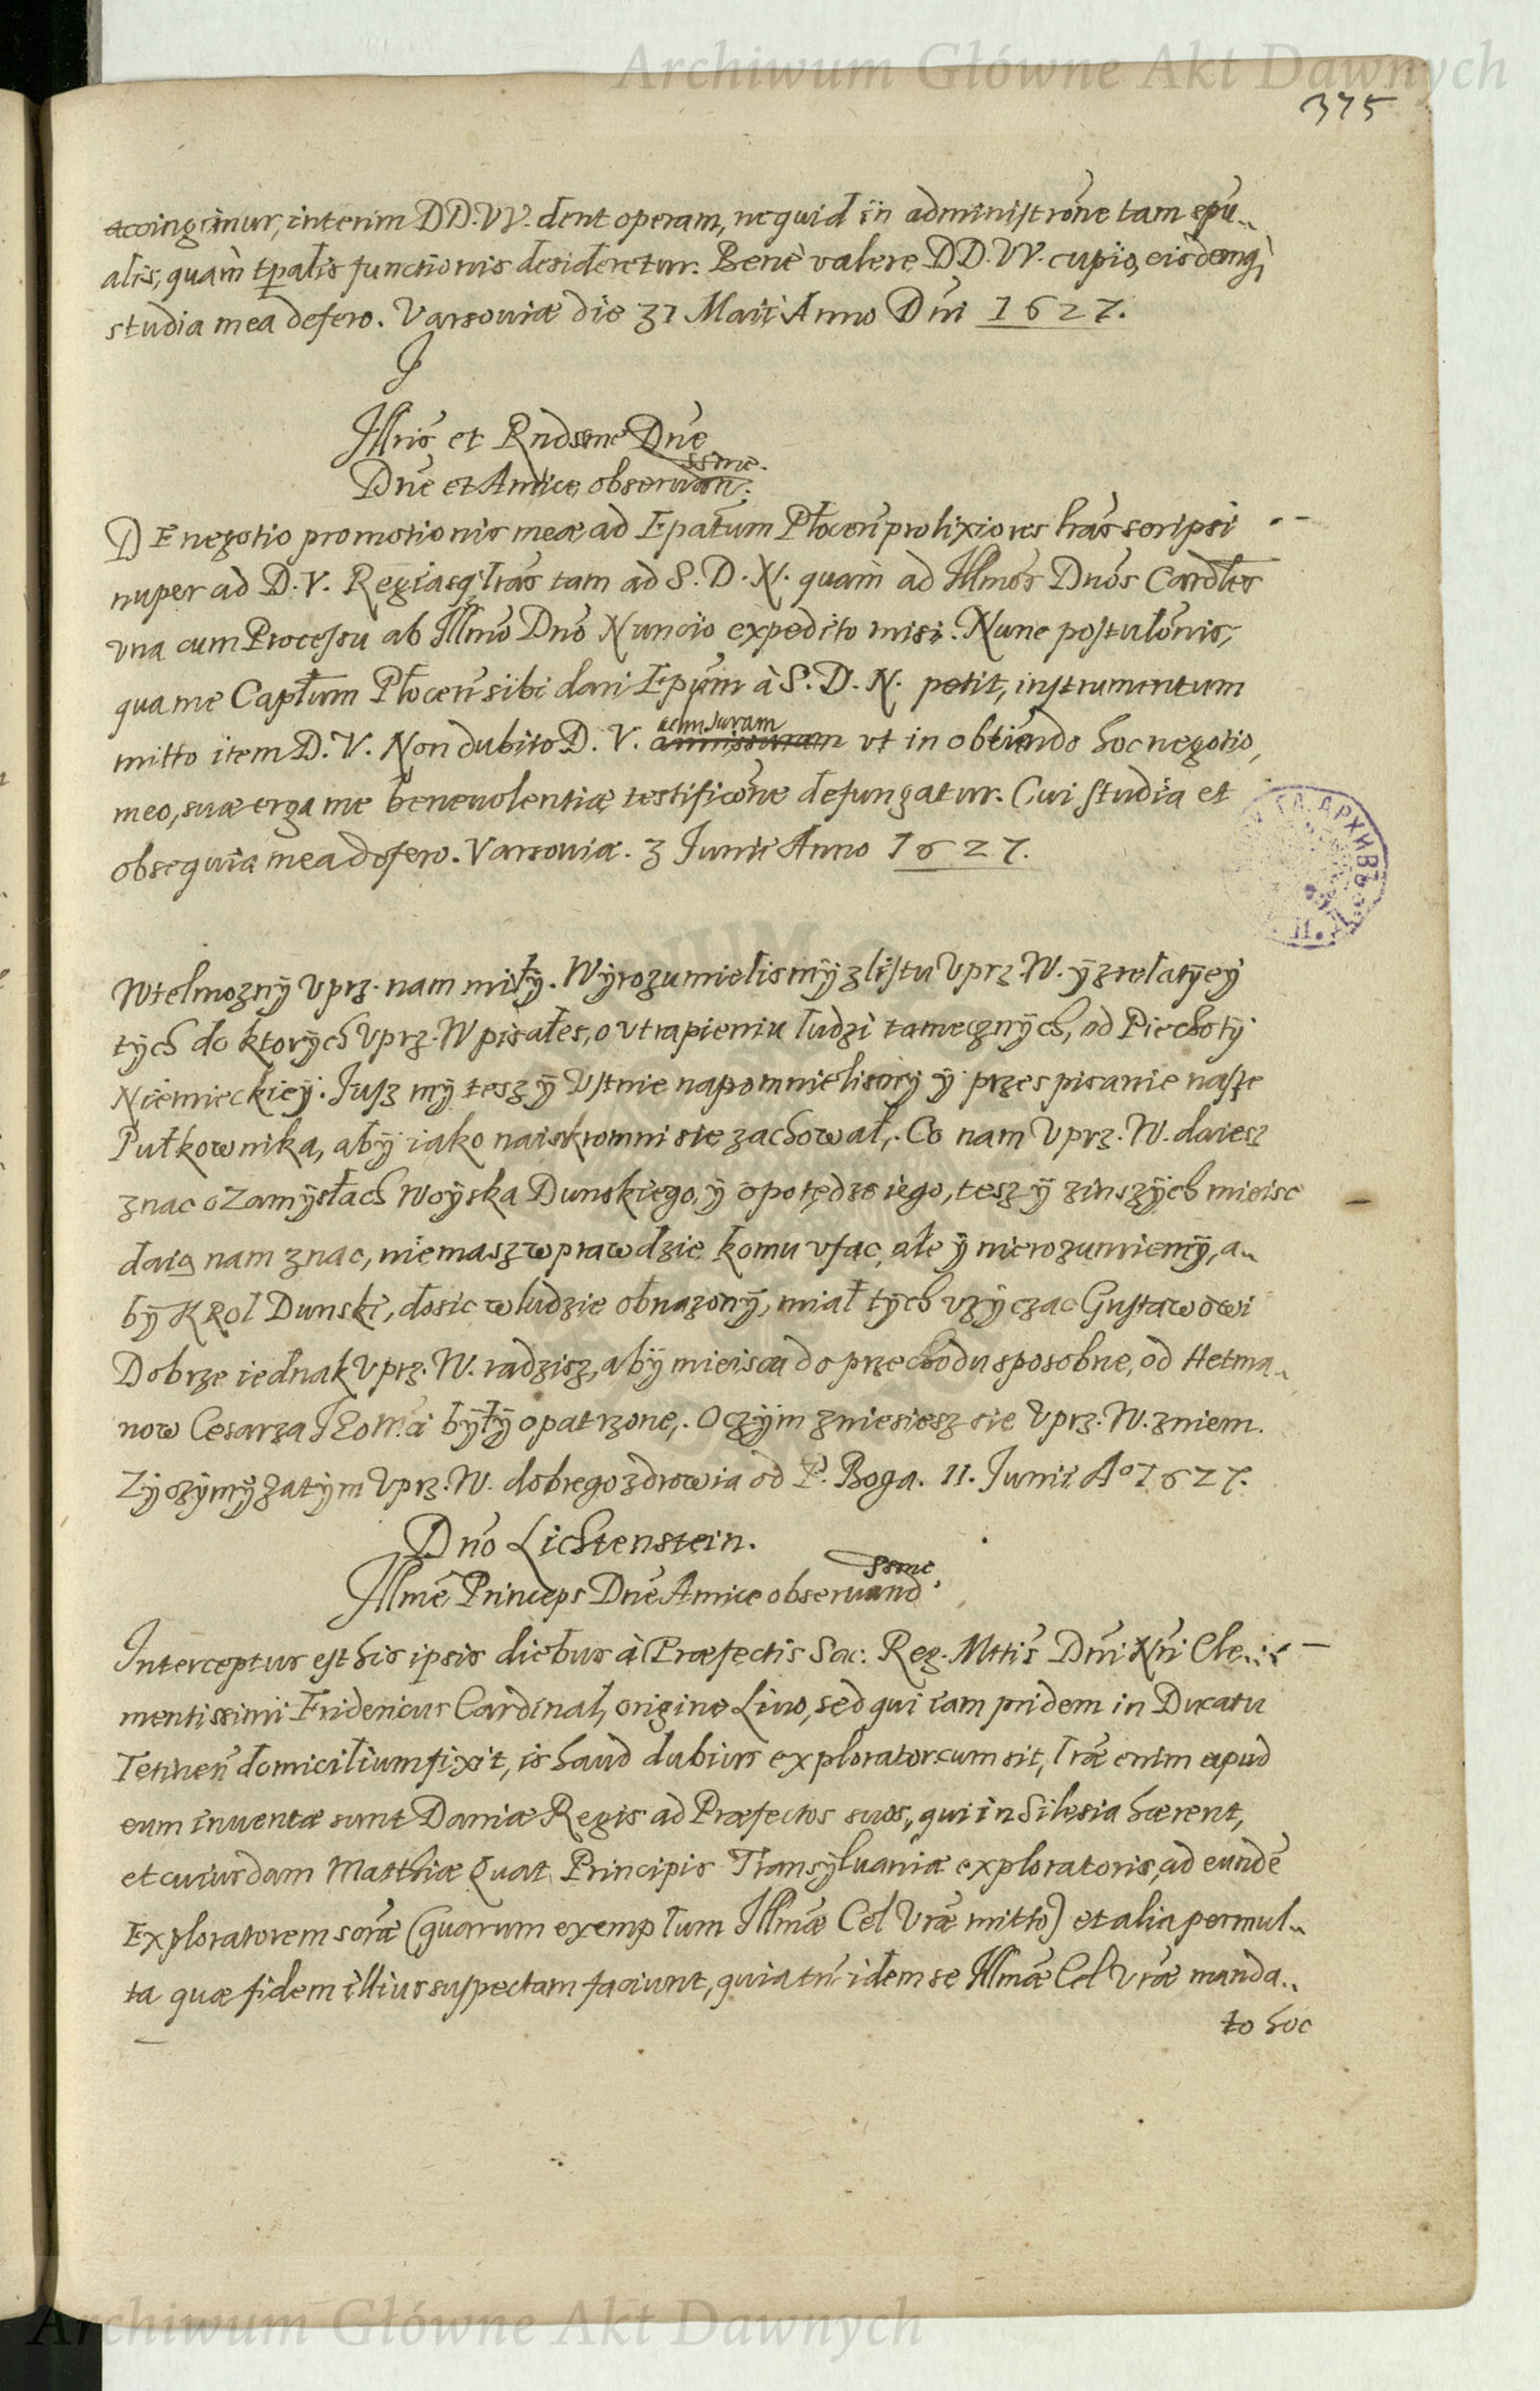 Archiwum Główne Akt Dawnych
375
accingimur, interim DD. VV. dent operam, nequid in administrõne tam spũ-
alis, quàm tpalis functionis desideretur. Benè valere DD. VV. cupio, eisdemq;
studia mea defero. Varsouiæ die 31 Maii Anno Dñi 1627.
Illris et Rndsme Dñe
Dñe et Amice obseruan: ssme.
DE negotio promotionis meæ ad Epatum Płoceñ prolixiores lras scripsi
nuper ad D. V. Regiasq; lras tam ad S. D. N. quam ad Illmos Dnos Cardles
vna cum Processu ab Illmo Dno Nuncio expedito misi. Nunc postulõnis,
qua me Captlum Płoceñ sibi dari Epum à S. D. N. petit, instrumentum
mitto item D. V. Non dubito D. V. annisuram vt in obtiñdo hoc negotio
meo, suæ erga me beneuolentiæ testificõne defungatur. Cui studia et
obsequia mea defero. Varsouiæ. 3 Junii Anno 1627.
Wielmozny Vprz. nam miły. Wyrozumielismy z listu Vprz. W. y z relatyey
tych do ktorych Vprz. W pisałes, o vtrapieniu ludzi tamecznych, od Piechoty
Niemieckiey. Jusz my tesz y Vstnie napomnielismy y przes pisanie nasze
Pułkownika, aby iako naiskromni sie zachował. Co nam Vprz. W. daiesz
znac o Zamysłach Woyska Dunskiego, y o potędze iego, tesz y z inszych mieisc
daią nam znac, niemasz wprawdzie komu vfac, ale y nierozumiemy, a-
by KRol Dunski, dosic w ludzie obnazony, miał tych vzyczac Gustawowi
Dobrze iednak Vprz. W. radzisz, aby mieisca do przechodu sposobne, od Hetma-
now Cesarza JEoMci były opatrzone. O czym zniesiesz sie Vprz. W. z niem.
Zyczymy zatym Vprz. W. dobrego zdrowia od P. Boga. 11. Junii Aº 1627.
Dño Lichtenstein.
Illme Princeps Dñe Amice obseruand ssme.
Interceptus est his ipsis diebus à Præfectis Sac: Reg. Mttis Dñi Nri Cle-
mentissimi Fridericus Cardinal, origine Liuo, sed qui iam pridem in Ducatu
domicilium fixit, is haud dubius explorator cum sit, lræ enim apud
eum inuentæ sunt Daniæ Regis ad Præfectos suos, qui in Silesia hærent,
et cuiusdam Matthiæ Quat Principis Transyluaniæ exploratoris, ad eundẽ
Exploratorem (quarum exemplum Illmæ Cel Vræ mitto) et alia permul-
ta quæ fidem illius suspectam faciunt, quia tñ idem se Illmæ Cel Vræ manda-
to hoc
Archiwum Główne Akt Dawnych